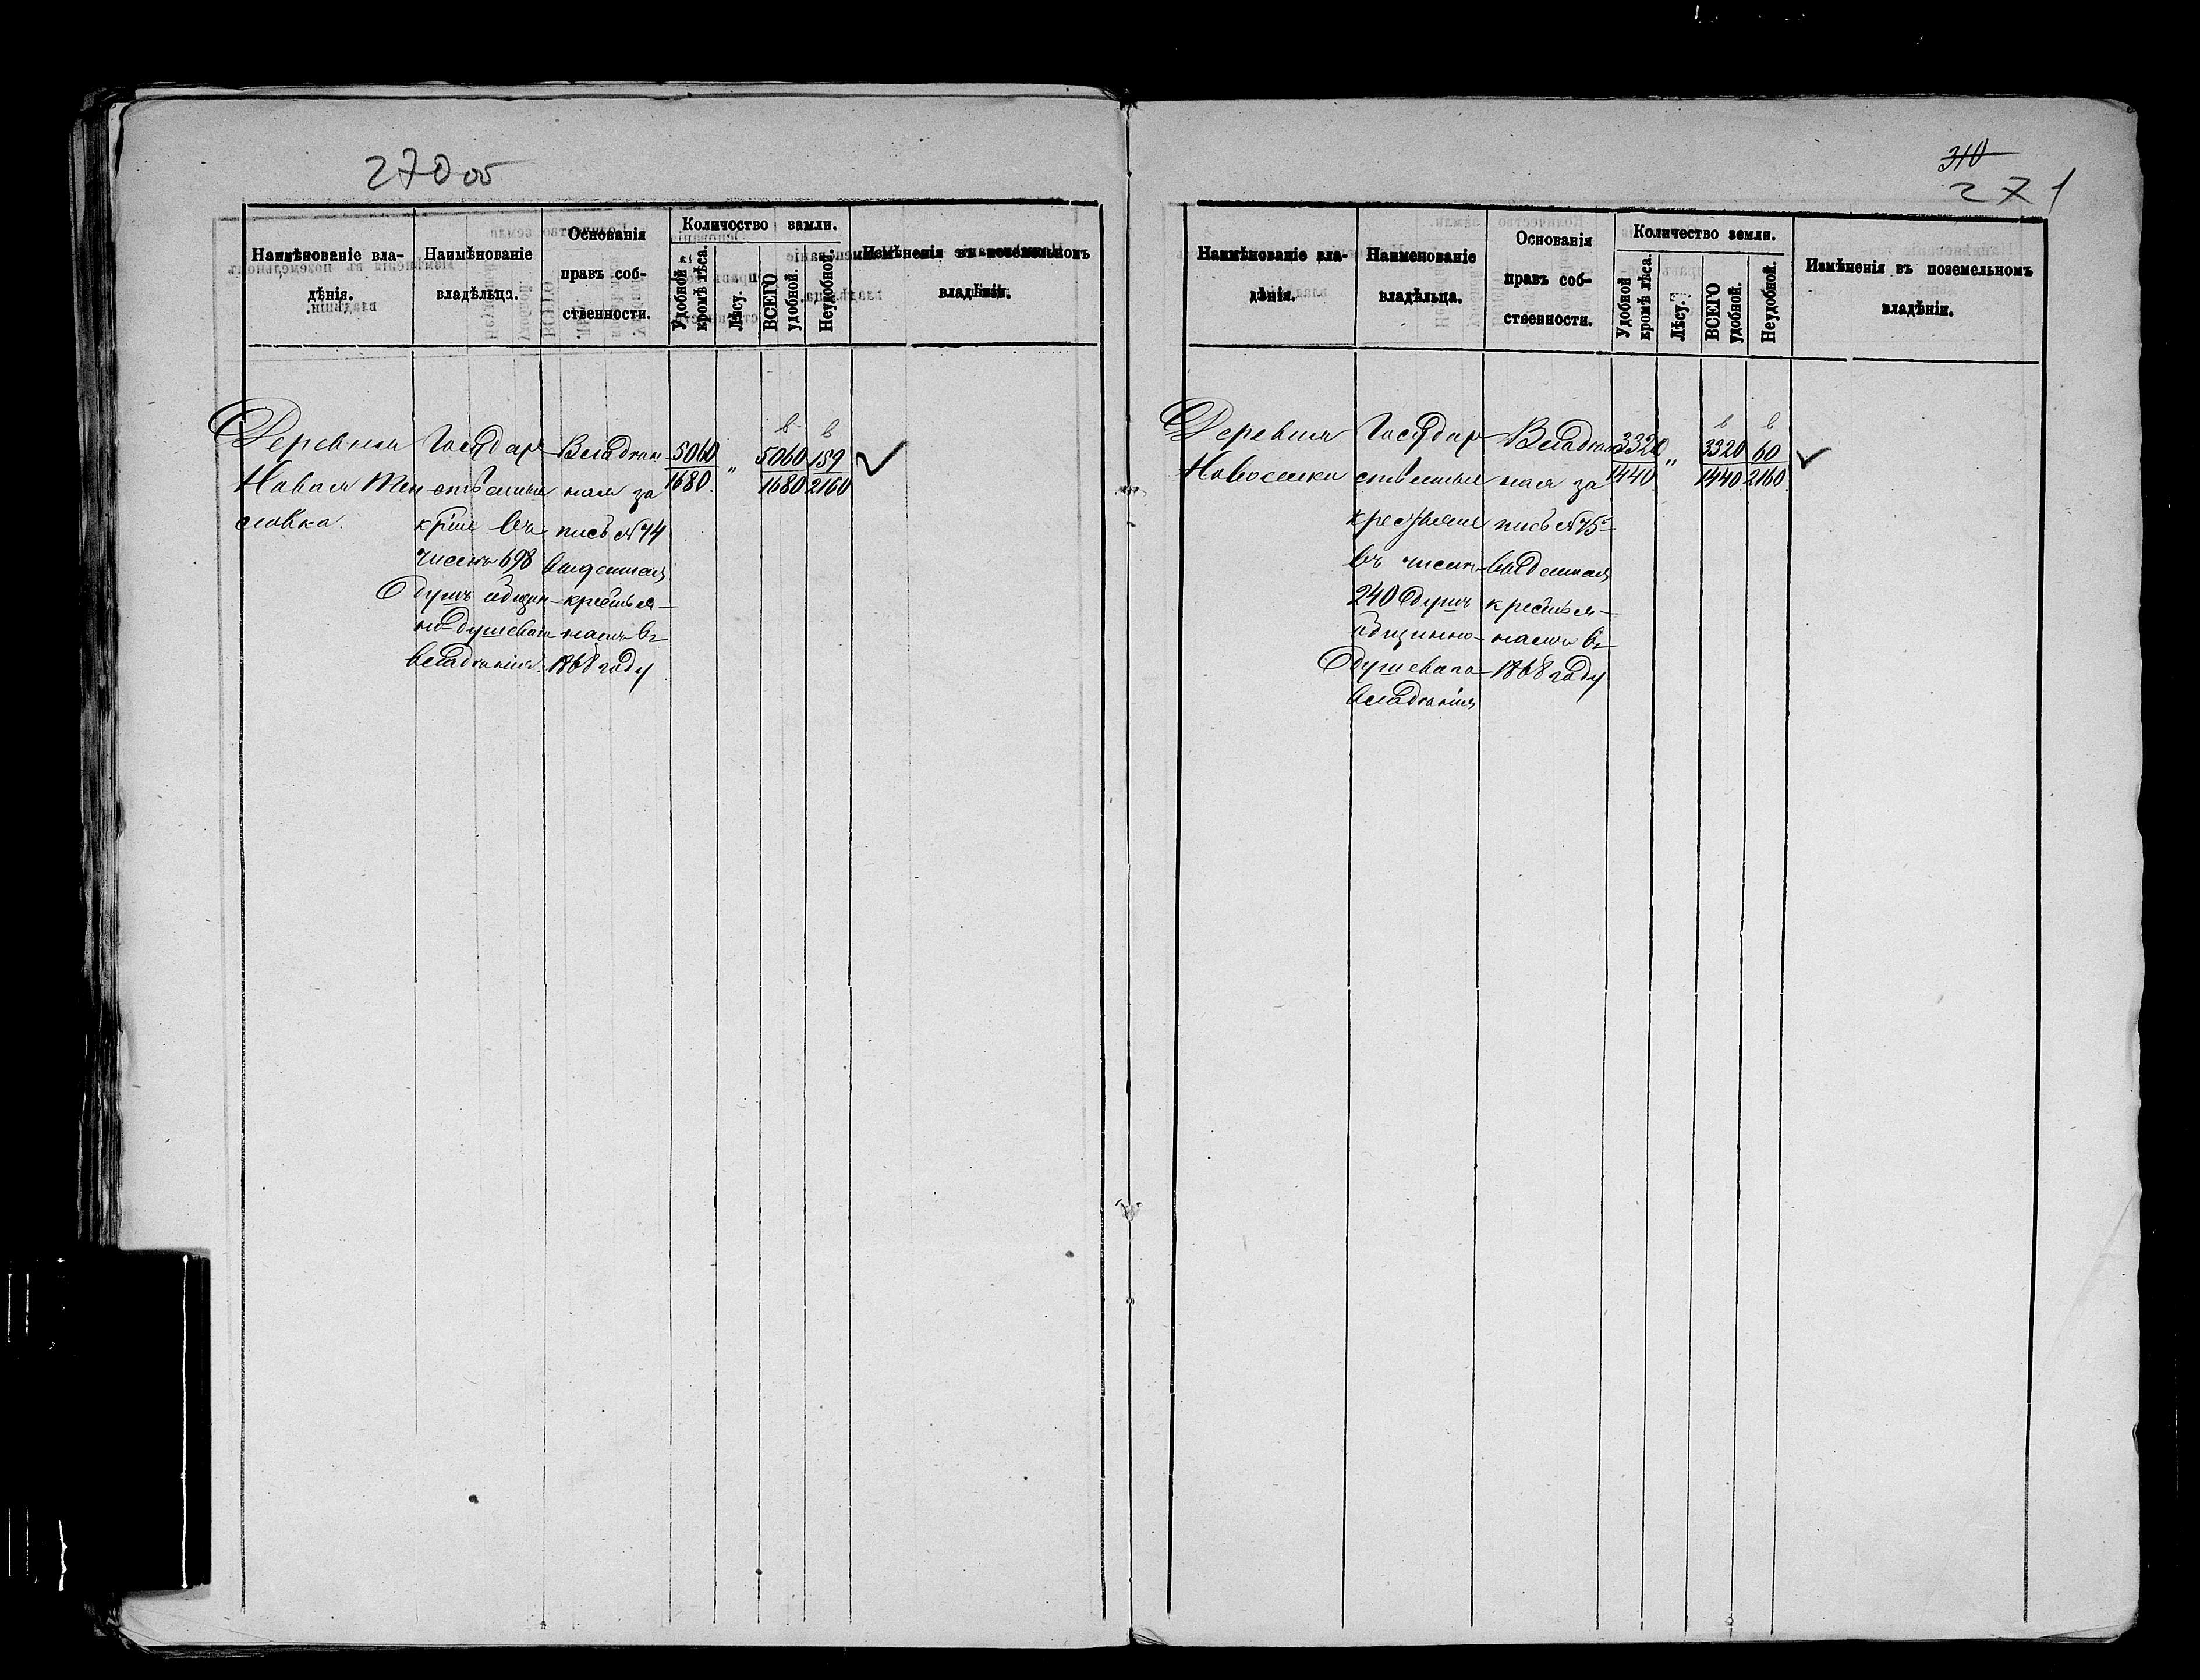 270 об
Наимѣнованіе вла-
дѣнія.
Наимѣнованіе
владѣльца.
Основанія
правъ соб-
ственности.
Количество земли.
Удобной
кромѣ лѣса.
Лѣсу.
ВСЕГО
удобной.
Неудобной.
Измѣненія въ поземельномъ
владѣніи.
Деревня
Новая Тен
словка.
Государ
ственные
кр҃не въ
числѣ 698
душъ общин-
но-душеваго
владѣнія.
Владѣн
ная за
пись № 74
выданная
крестья-
намъ въ
1868 году
5060
1680
"
в
5060
1680
в
159
2160
310
271
Наимѣнованіе вла-
дѣнія.
Наименованіе
владѣльца.
Основанія
правъ соб-
ственности.
Количество земли.
Удобной
кромѣ лѣса.
Лѣсу.
ВСЕГО
удобной.
Неудобной.
Измѣненія въ поземельномъ
владѣніи.
Деревня
Новоселки
Государ
ственные
крестьяне
въ числѣ
240 душъ
общинно-
душеваго
владѣнія
Владѣн
ная за
пись № 75
выданная
крестья-
намъ въ
1868 году
3320
1440
"
в
3320
1440
в
60
2160